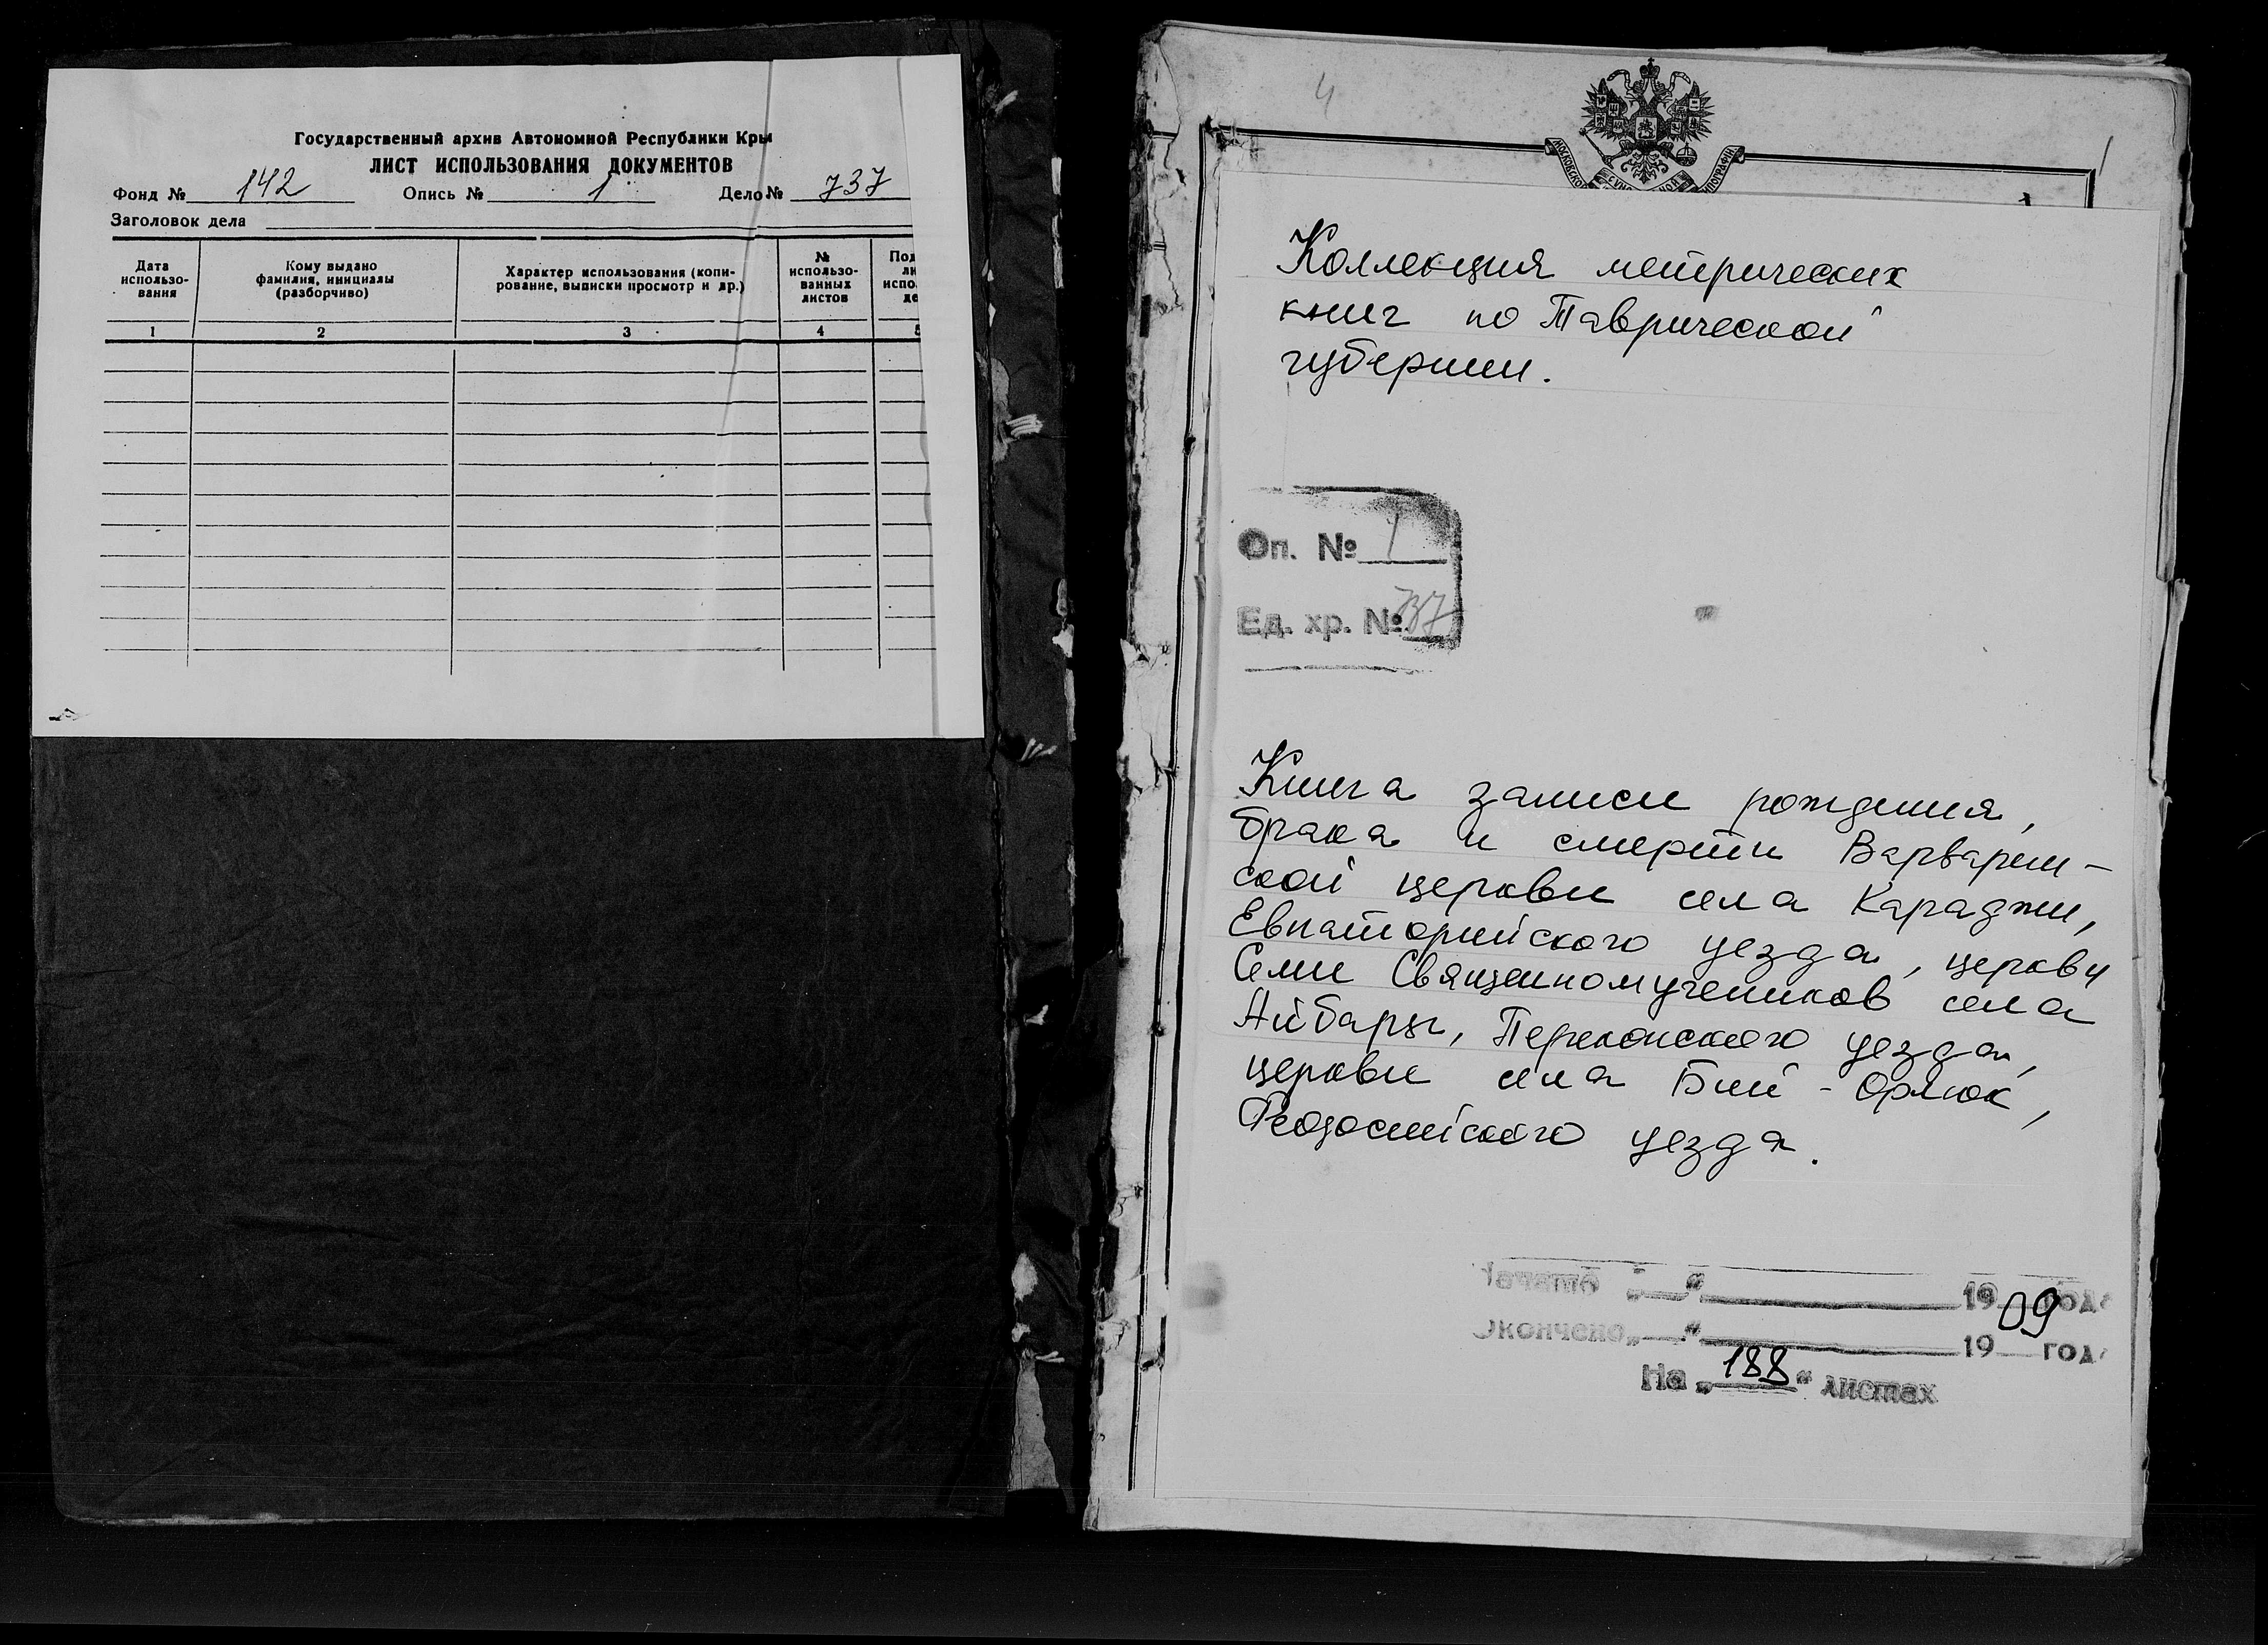 Государственный архив Автономной Республики Кры
ЛИСТ ИСПОЛЬЗОВАНИЯ ДОКУМЕНТОВ
Фонд № 142 Опись № 1 Дело № 737
Заголовок дела
Дата
использо-
вания
Кому выдано
фамилия, инициалы
(разборчиво)
Характер использования (копи-
рование, выписки просмотр и др.)
№
использо-
ванных
листов
Под
ли
испо
де
1 2 3 4 5
4
1
МОСКОВСКОЙ СИНОДАЛЬНОЙ ТИПОГРАФІИ
Коллекция метрических
книг по Таврической
губернии.
Оп. № 1
Ед. хр. № 737
Книга записи рождения,
брака и смерти Варварин-
ской церкви села Караджи,
Евпаторийского уезда, церкви
Семи Священномучеников села
Айбары, Перекопского уезда,
церкви села Бий - Орлюк,
Феодосийского уезда.
Начато „ “ 1909 года
Окончено „ “ 19 года
На „188“ листах